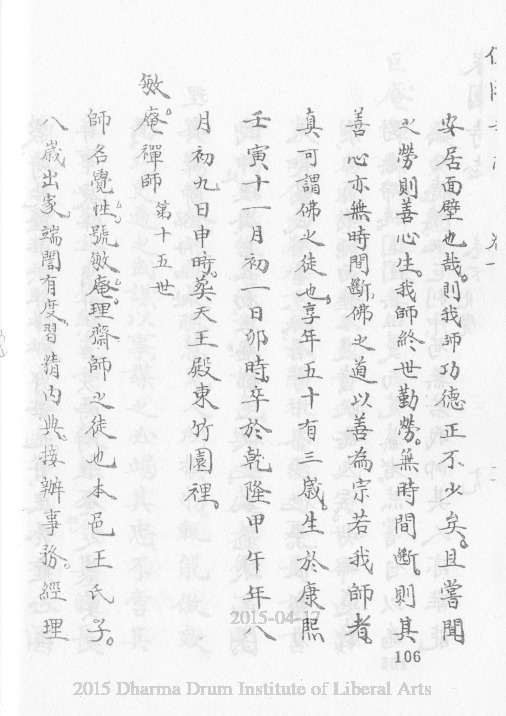 安居面壁也哉則我師功德正不少矣且嘗聞
之勞則善心生我師終世勤勞無時間斷則其
善心亦無時間斷佛之道以善為宗若我師者
真可謂佛之徒也享年五十有三歲生於康熙
壬寅十一月初一日卯時卒於乾隆甲午年八
月初九日申時葬天王殿東竹園裡
敏庵禪師 第十五世
師名覺性號敏庵理齋師之徒也本邑王氏子
八歲出家端誾有度習精內典接辦事務經理
106
2015-04-17
2015 Dharma Drum Institute of Liberal Arts